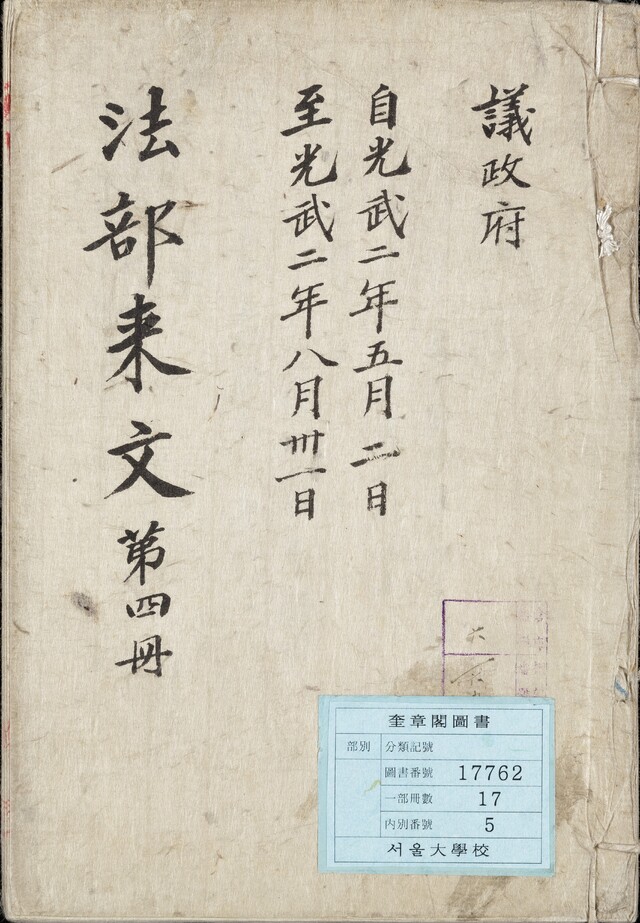 議政府
自光武二年五月二日
至光武二年八月卅一日
法部来文 第四冊
奎章閣圖書
部別 分類記號
圖書番號 17762
一部冊數 17
內別番號 5
서울大學校